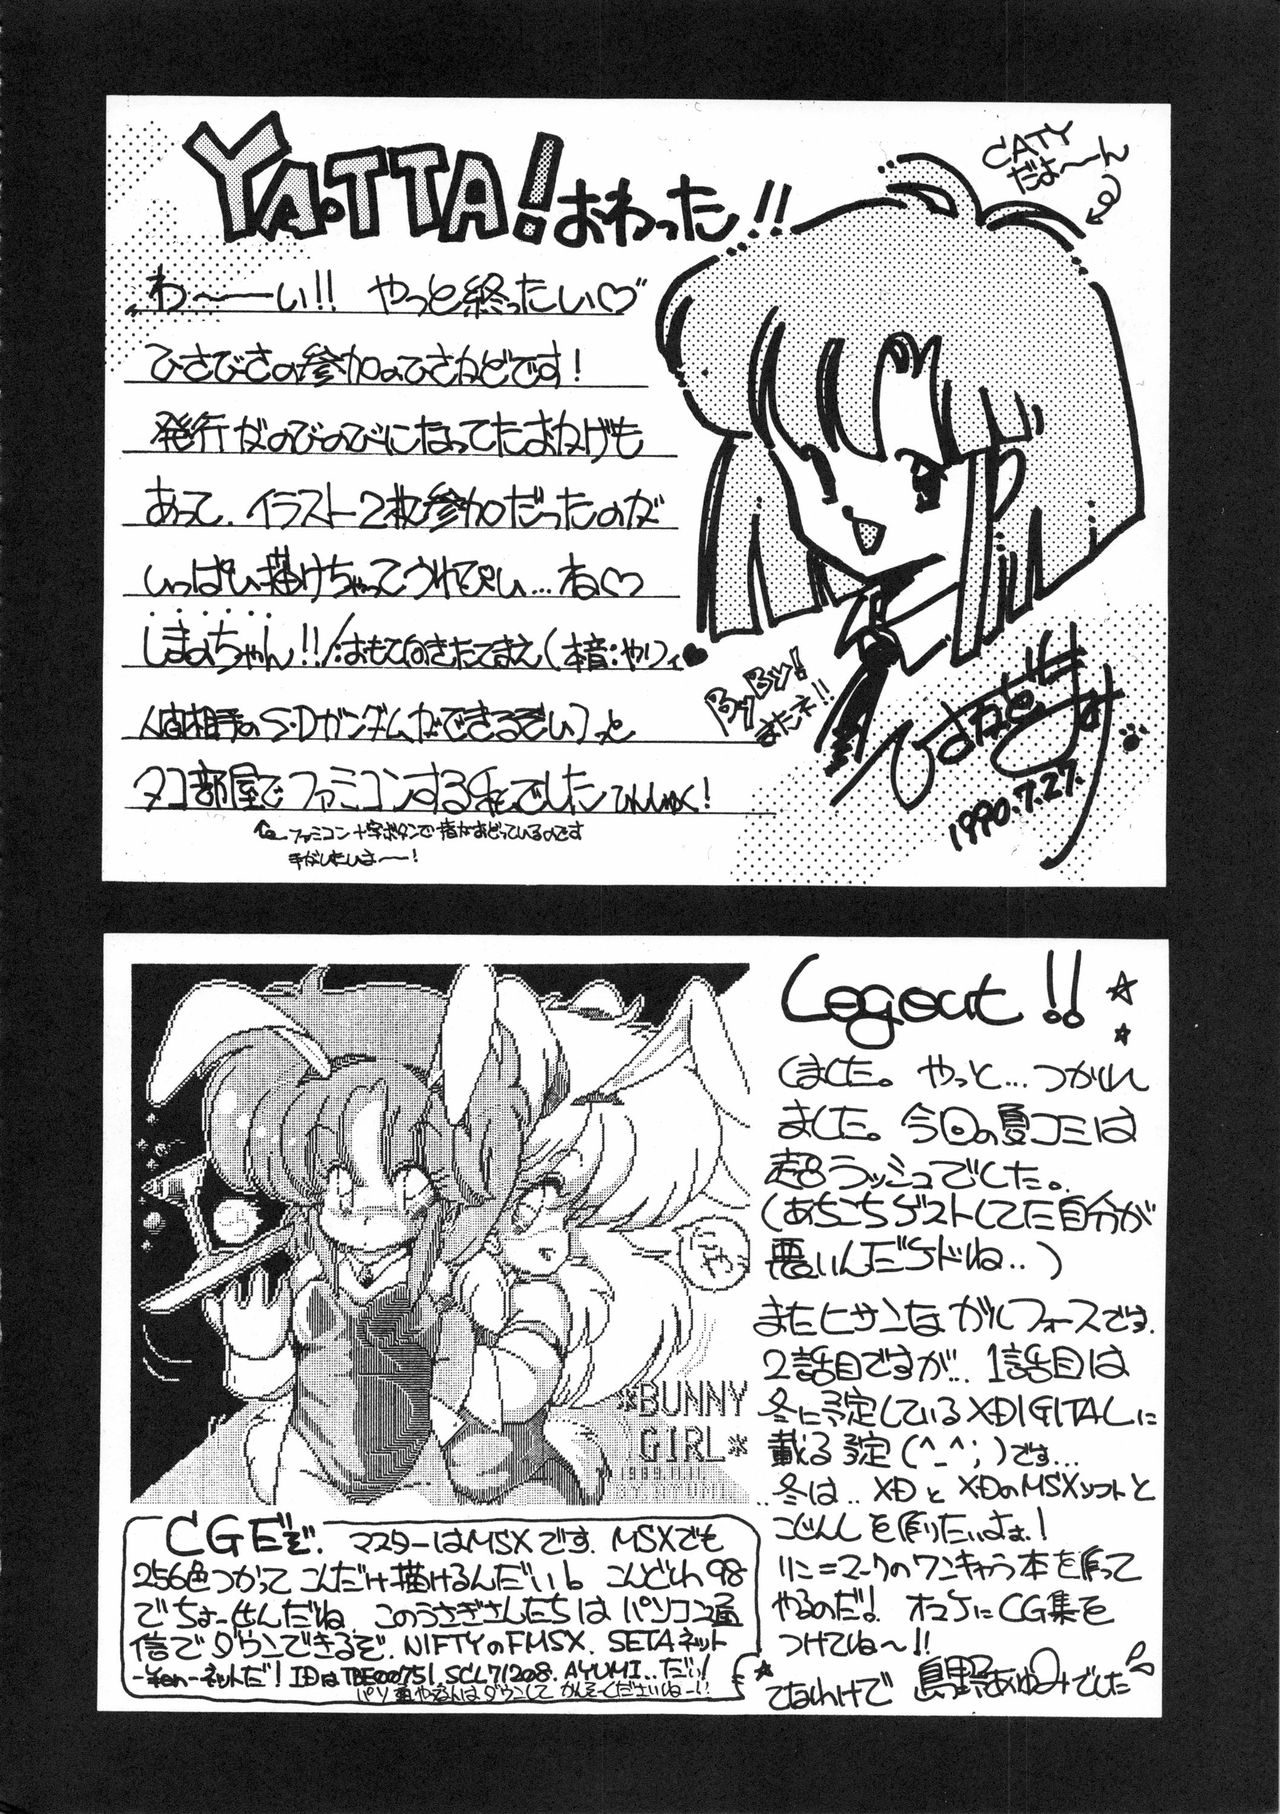 YA.TTA!おわった!!
CATY
だよ〜〜ん
わ〜〜い!! やっと終ったい♡
ひさびさの参加のひさねどです!
発行がのびのびになってたおかげも
あって、イラスト2枚参加だったのが
いっぱい描けちゃってうれぴい…ね♡
しまのちゃん!!
おもて向きたてまえ(本音:やりィ♥
人間相手のS・Dガンダムができるぞい)っと
タコ部屋でファミコンする
でした
ByBy!
またネ!!
ファミコン十字ボタンで指がおどっているのです
1990.7.27.
Logout!!
しました。やっと…つかれ
ました。今回の夏コミは
超ラッシュでした。
(あちこちゲストしてた自分が
悪いんだケドね..)
またヒサンなガルフォースです.
2話目ですが… 1話目は
冬に予定しているXDIGITALに
載る予定(^_^;)です…
..冬は..XDとXDのMSXソフトと
こじんしを作りたいよぉ!
ミンキャラ本を作って
やるのだよ! オマケにCG集を
つけてね〜!!
てなわけで 島野あゆみでした
いや
*BUNNY
GIRL*
1989.11.11.
BY.AYUMI
CGEぞ. マスターはMSXです. MSXでも
256色つかってこんだけ描けるんだい♭ こんどわ98
でちょーせんだね このうさぎさんたちはパソコン通
信でダウンできるぞ. NIFTYのFMSX. SETAネット
-ネットだ! IDはTBE00751. SCL71208. AYUMI..だい!
パソ通やさんはダウンしてかんそーくださいねー!!